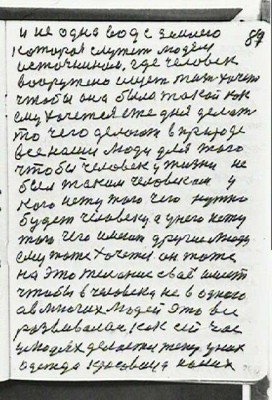 и не одна вода с землею 87
которая служит людям
источником, где человек
вооружено ищет тоже хочет
чтобы она была такой как
ему хочется ежедня делать
то чего делают в природе
все наши люди для того
чтобы человек у жизни не
был таким человеком у
кого нету того чего нужно
будет человеку, а у него нету
того чего имеют другие люди
ему тоже хочется он тоже
на это желание своё имеет
чтобы в человека не в одного
а в многих людей это все
развивалось как сейчас
у людях делается между у них
одежда красавица